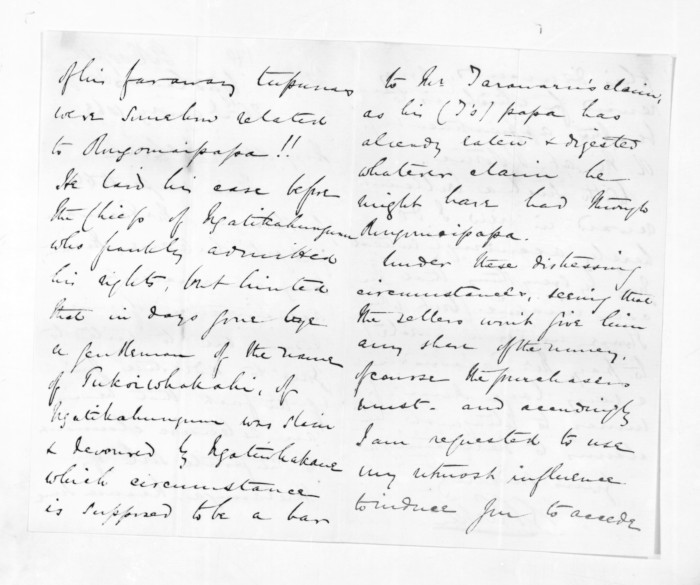 of his faraway tupunas
were somehow related
to Rongomaipapa!!
He laid his case before
the Chiefs of Ngatikahungunu
who frankly admitted
his rights, but hinted
that in days gone bye
a gentleman of the name
of Tukoriwhakahi, of
Ngatikahungunu was slain
& devoured by Ngatiwhakaue
which circumstance
is supposed to be a bar
to Mr Taranaru's claim,
as his (T's) papa has
already eaten & digested
whatever claim he
might have had through
Rongomaipapa.
Under these distressing
circumstances, seeing that
the sellers won't give him
any share of the money,
of course the purchasers
must - and accordingly
I am requested to use
my utmost influence
to induce you to accede